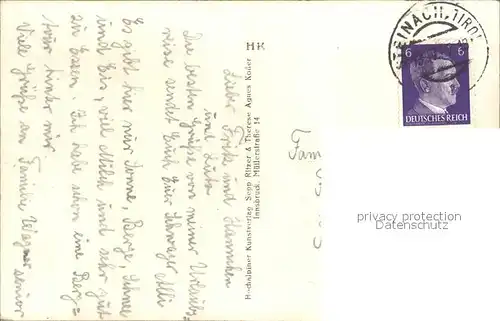 Lieber Fritz und Hannchen
und Lutz
Die besten Grüße von meiner Urlaubs-
reise sendet Euch Euer Schwager Alli
Es gibt hier nur Sonne, Berge, Schnee
und Eis, viel Milch und sehr gut
zu Essen. Ich habe schon eine Berg=
tour hinter mir
Viele Grüße an Familie Wagner senior
HK
Hochalpiner Kunstverlag Sepp Ritzer & Therese Agnes Koder
Innsbruck, Müllerstraße 14
Fam
STEINACH, TIROL
6 6
DEUTSCHES REICH
privacy protection
Datenschutz